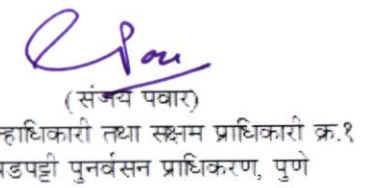 (संजय पवार)
न्हाधिकारी तथा सक्षम प्राधिकारी क्र.१
पडपट्टी पुनर्वसन प्राधिकरण, पुणे